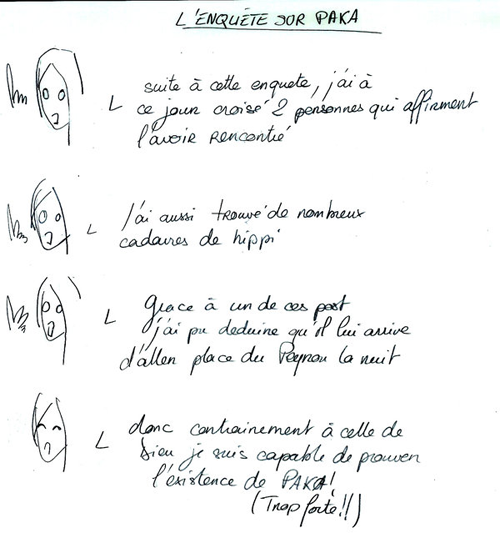 L'ENQUÊTE SUR PAKA
suite à cette enquete, j'ai à
ce jour croisé 2 personnes qui affirment
l'avoir rencontré
J'ai aussi trouvé de nombreux
cadavres de hippi
Grace à un de ces post
j'ai pu deduire qu'il lui arrive
d'aller place du Peyrou la nuit
donc contrairement à celle de
Dieu je suis capable de prouver
l'éxistence de PAKA!
(Trop forte!!)